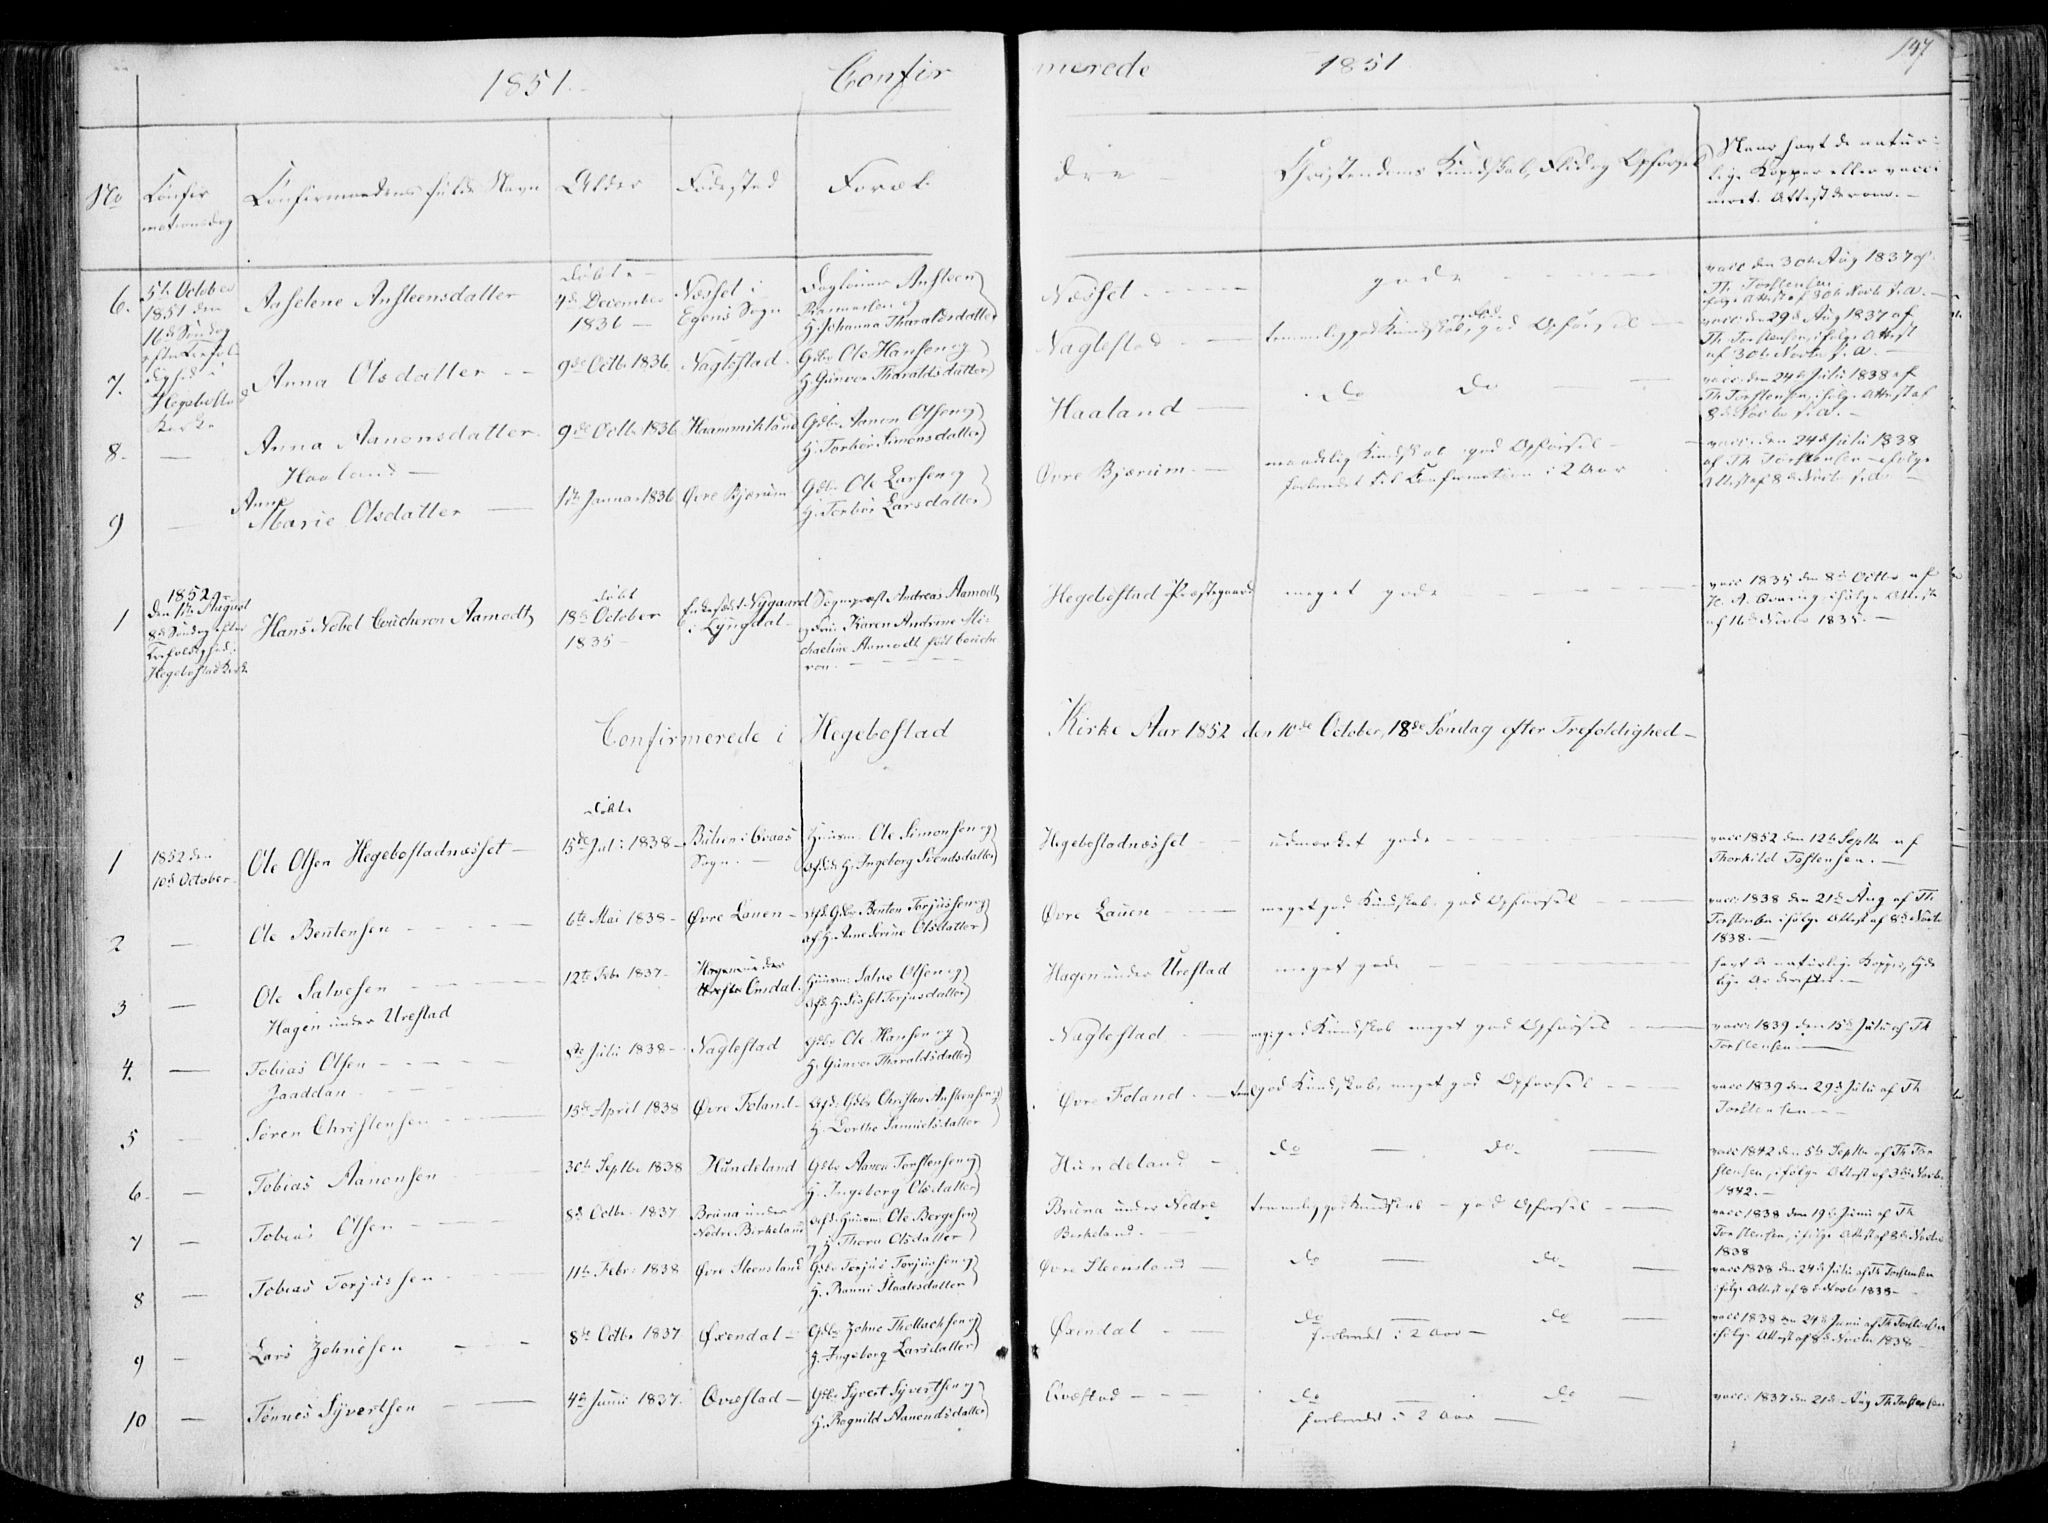 1851. Confirmerede 1851 147
No
Confirmationsdag
Confirmandens fulde Navn
Alder
Fødested
Forældre
Christendoms Kundskab, Flid og Opførsel
Naar havt de naturlige Kopper eller vaccineret. Attest derom.
6. 5te October 1851 den 16de Søndag efter Trefoldighed i Hegebostad Kirke
Anselene Ansteensdatter
døbt
4de December 1836
Næsset i Egens Sogn
Dagleier Ansteen Rasmusen og H. Johanna Tharaldsdatter
Næsset
gode
vacc den 30te Aug 1837 af Th. Torstensen ifølge Attest af 30te Novbr s. a.
7. Anna Olsdatter
9de Octb. 1836
Naglestad
Gdbr Ole Hansen og H. Gunvor Tharaldsdatter
Naglestad
temmelig god Kundskab, god Opførsel
vacc: den 29de Aug 1837 af Th. Torstensen, ifølge Attest af 30te Novbr s. a.
8. Anna Aanonsdatter Haaland
9de Octb. 1836
Haammikland
Gdbr Aanon Olsen og H. Torbor Simonsdatter
Haaland
do do
vacc: den 24de Juli 1838 af Th. Torstensen, ifølge Attest af 8de Novbr s. a.
9 Anne Marie Olsdatter
1te Januar 1836
Øvre Bjærum
Gdbr Ole Larsen og H. Torbor Larsdatter
Øvre Bjærum
maadelig Kundskab god Opførsel
forberedet til Confirmation i 2 Aar
vacc: den 24de Juli 1838 af Th Torstensen ifølge Attest af 8de Novbr s. a.
1 1852 den 1te August 8de Søndag efter Trefoldighed i Hegebostad Kirke
Hans Nobel Coucheron Aamodt
døbt
18de October 1835
Enkesædet Nygaard i Lyngdal
Sognepræst Andreas Aamodt og Fru Karen Andrine Michaeline Aamodt født Coucheron.
Hegebostad Præstegaard
meget gode
vacc 1835 den 8de Octbr af ifølge Attest af 16de Novbr 1835.
Confirmerede i Hegebostad Kirke Aar 1852 den 10de October, 18de Søndag efter Trefoldighed
1 1852 den 10de October
Ole Olsen Hegebostadnæsset
døbt
15de Juli 1838
Sogn.
Huusm: Ole Simonsen og afdøde H. Ingeborg Svendsdatter
Hegebostadnæsset
udmærket gode
vacc 1852 den 12te Septbr af Thorkild Tostensen.
2 Ole Bentensen
6te Mai 1838
Øvre Lauen
Afd. Gdbr Benten Torjussen og af H. Anne Serine Olsdatter
Øvre Lauen
meget god Kundskab, god Opførsel
vacc 1838 den 21de Aug af Th. Torstensen ifølge Attest af 8de Novbr 1838.
3 Ole Salvesen Hagen under Urestad
12te Febr 1837
Hagen under Omdal
Huusm: Salve Olsen og afd: H. Sissel Torjusdatter
Hagen under Urestad
meget gode
havt de naturlige Kopper, tydelige Ar derefter.
4. Tobias Olsen Jaaddan
8de Juli 1838
Naglestad
Gdbr Ole Hansen og H. Gunvor Tharaldsdatter
Naglestad
meg: god Kundskab meget god Opførsel
vacc: 1839 den 15de Juli af Th Torstensen
5 Søren Christensen
15de April 1838
Øvre Foland
Afd: Gdbr Christen Ansteensen og H. Dorthe Samuelsdatter
Øvre Foland
god Kundskab, meget god Opførsel
vacc 1839 den 29de Juli af Th Torstensen
6 Tobias Aanonsen
30te Septbr 1838
Hundeland
Gdbr Aanon Torstensen og H. Ingeborg Olsdatter
Hundeland
do do
vacc 1842 den 5te Septbr af Th Torstensen, ifølge Attest af 3de Novbr 1842.
7 Tobias Olsen
8de Octbr. 1837
Bruna under Nedre Birkeland
Afd. Huusm: Ole Bergesen og H. Thora Olsdatter
Bruna under Nedre Birkeland.
temmelig god Kundskab god Opførsel
vacc 1838 den 19de Juni af Th Torstensen, ifølge Attest af 8de Novbr 1838
8 Tobias Torjussen
11te Febr: 1838
Øvre Steensland
Gdbr Torjus Torjussen og H. Ranni Staalesdatter
Øvre Steensland
do do
vacc 1838 den 24de Juli af Th Torstensen ifølge Attest af 8de Novbr 1838
9 Lars Johnesen
8de Octbr 1837
Øxendal
Gdbr Johne Thollachsen og H. Ingeborg Larsdatter
Øxendal
do do
forberedet i 2 Aar
vacc 1838 den 24de Juni af Th Torstensen ifølge Attest af 8de Novbr 1838
10 Tønnes Syvertsen
4de Juni 1837
Qvæstad
Gdbr Syvert Syvertsen og H. Ragnild Aanondsdatter
Qvæstad
do do
forberedet i 2 Aar
vacc: 1837 den 21de Aug Th Torstensen